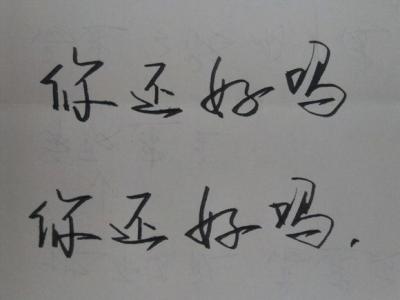 你还好吗
你还好吗.